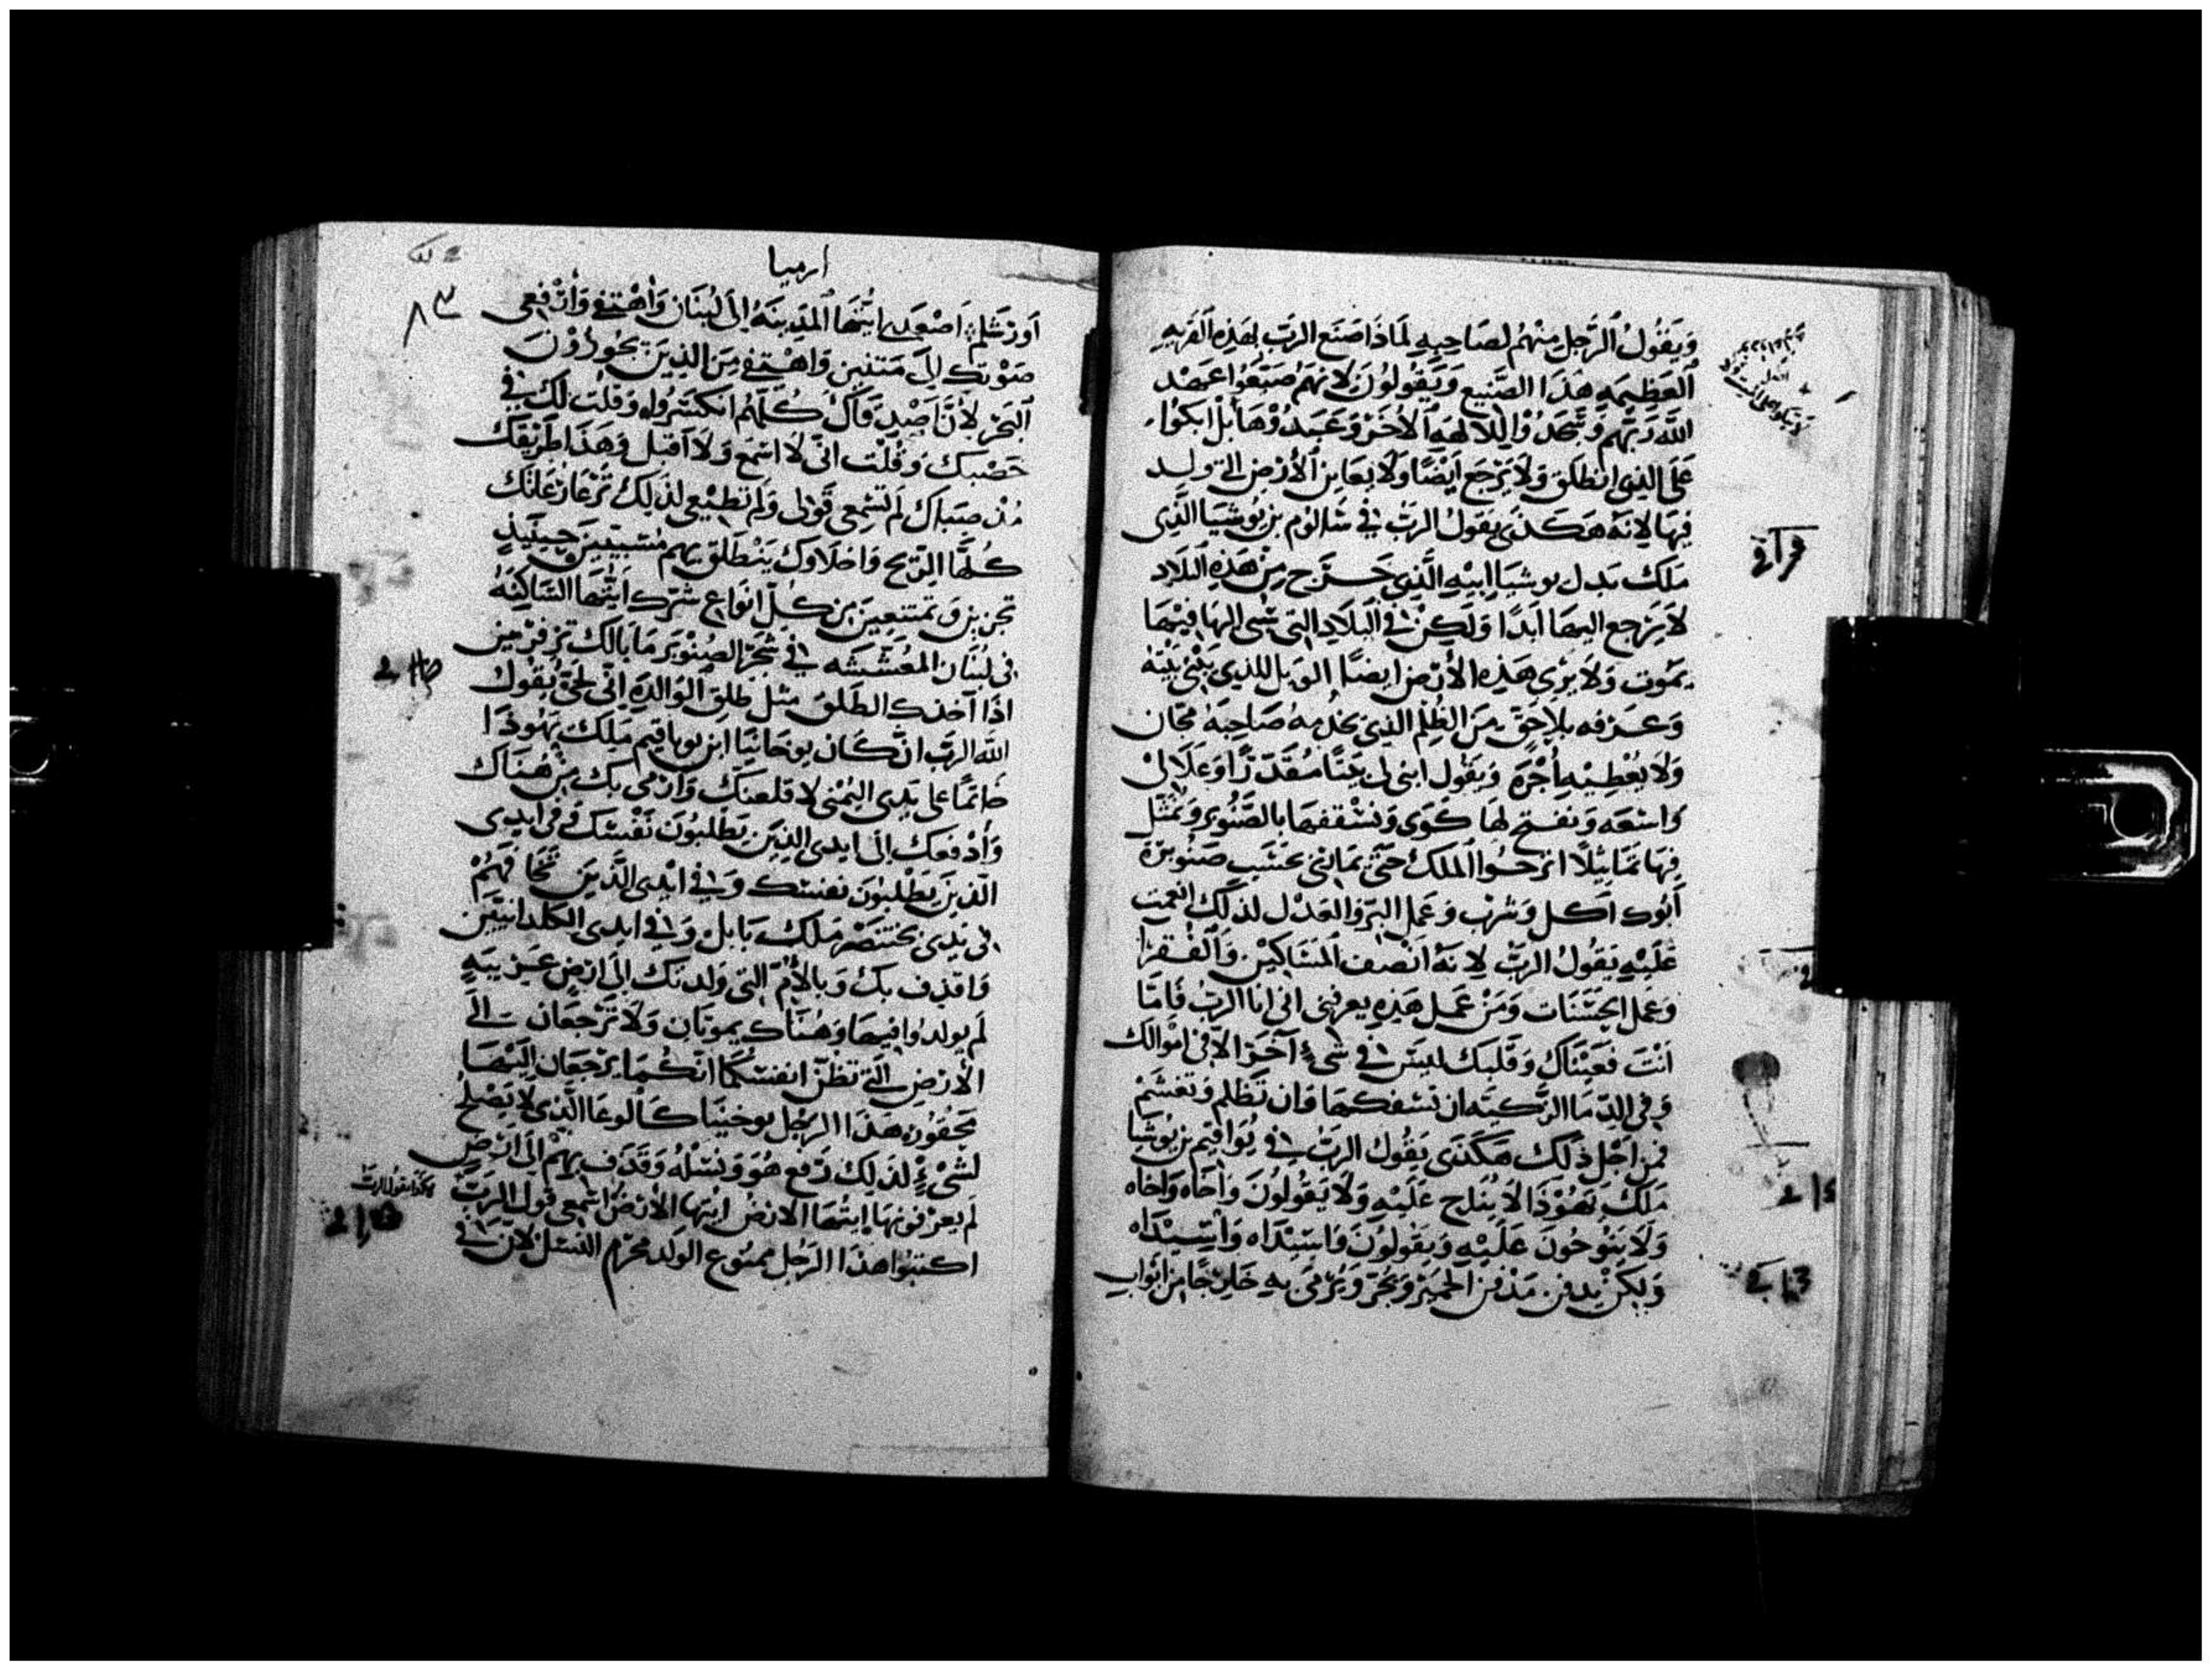 ويقول الرجل منهم لصاحبه لماذا صنع الرب بهذه القريه
العظيمه هذا الصنيع ويقولون لانهم ضيعوا عهد
الله ربهم وسجدوا للالهه الاخر وعبدوها بل ابكوا
على الذي انطلق ولا يرجع ايضا ولا يعاين الارض التي ولد
فيها لانه هكذى يقول الرب في شالوم بن يوشيا الذي
ملك بدل يوشيا ابيه الذي خرج من هذه البلاد
لا يرجع اليها ابدا ولكن في البلاد التي سبي اليها فيها
يموت ولا يرى هذه الارض ايضا الويل للذي يبني بيته
وغرفه بلا حق من الظلم الذي يخدمه صاحبه مجان
ولا يعطيه اجره ويقول ابني لي بيتا مقدرا وعلالي
واسعه ونفتح لها كوى ونسقفها بالصنوبر ونمثل
فيها تماثيلا اترجوا الملك حتى بخشب صنوبرة
ابوك اكل وشرب وعمل البر والعدل لذلك انعمت
عليه يقول الرب لانه انصف المساكين والفقرا
وعمل الحسنات ومن عمل هذه يعرفني اني انا الرب فاما
انت فعيناك وقلبك ليس في شيء آخر الا في اموالك
وفي الدما الزكيه ان تسفكها وان تظلم وتغشم
فمن اجل ذلك هكذى يقول الرب في يواقيم بن يوشيا
ملك يهوذا لا يناح عليه ولا يقولون وااخاه وااخاه
ولا ينوحون عليه ويقولون واسيداه واسيداه
ولكن يدفن مدفن الحمير ويجر ويرمى به خارجا من ابواب
ارميا
٨٣
اورشليم اصعدي ايتها المدينه الى لبنان واهتفي وارفعي
صوتك الى متنين واهتفي من الذين يجوزون
البحر لان كلهم انكسروا وقلت لك في
خصبك وقلت اني لا اسمع ولا اقبل وهذا طريقك
منذ صباك لم تسمعي قولي ولم تطيعي لذلك ترعا رعاتك
كلها الريح واخلاوك ينطلق بهم مسبيين حينيذ
تخزين وتمتنعين من كل انواع شرك ايتها الساكنه
في لبنان المعششه في شجر الصنوبر ما بالك تزفرين
اذا اخذك الطلق مثل طلق الوالده اني لحي يقول
الله الرب ان كان يوخانيا ابن يوياقيم ملك يهوذا
خاتما على يدي اليمنى لاقلعنك وارمي بك من هناك
وادفعك الى ايدي الذين يطلبون نفسك وفي ايدي
الذين يطلبون نفسك وفي ايدي الذين تخافهم
في يدي بختنصر ملك بابل وفي ايدي الكلدانيين
واقذف بك وبالام التي ولدتك الى ارض غريبه
لم يولدوا فيها وهناك يموتان ولا ترجعان الى
الارض التي تظن انفسكما انكما يرجعان اليها
محقور هذا الرجل يوخنيا كالوعا الذي لا يصلح
لشيء لذلك رفع هو ونسله وقذف بهم الى ارض
لم يعرفونها ايتها الارض ايتها الارض اسمعي قول الرب
هكذا يقول الرب
اكتبوا هذا الرجل ممنوع الولد محرم النسل لان في